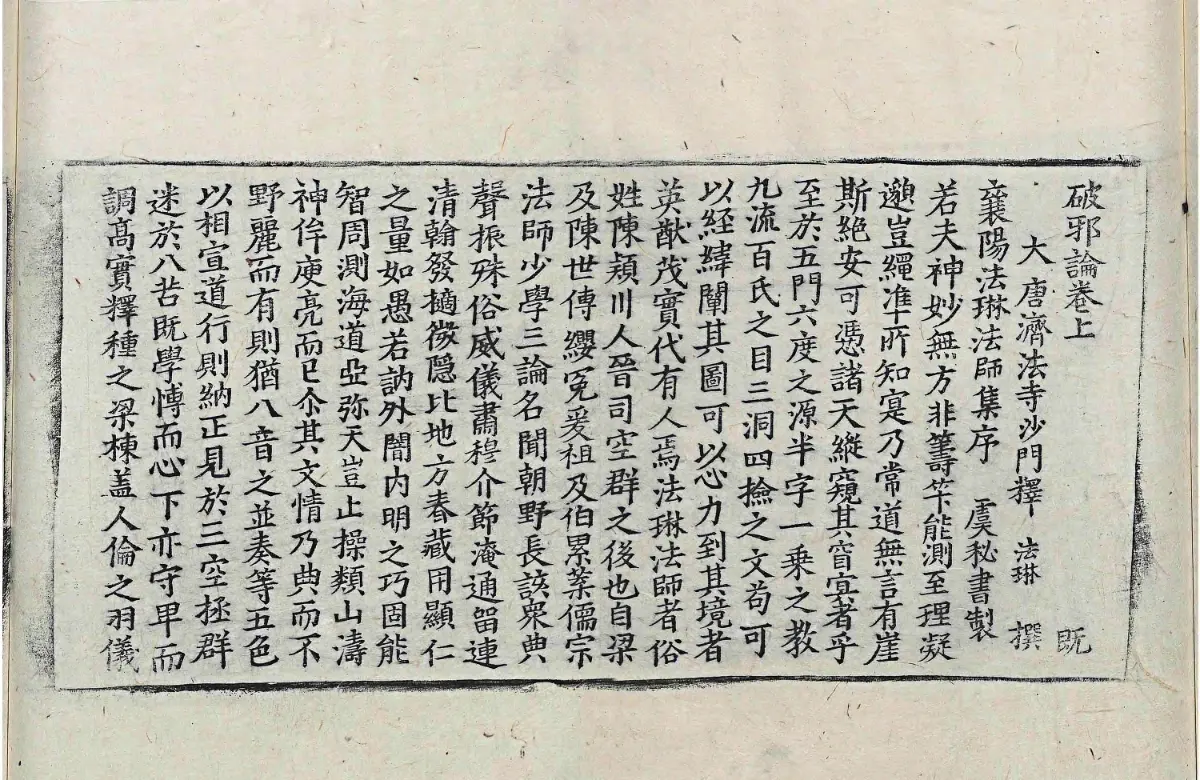 破邪論卷上 既
大唐濟法寺沙門釋 法琳 撰
襄陽法琳法師集序 虞秘書製
若夫神妙無方非籌筭能測至理凝
邈豈繩准所知寔乃常道無言有崖
斯絶安可憑諸天縱窺其窅寘者乎
至於五門六度之源半字一乗之教
九流百氏之目三洞四撿之文苟可
以経緯闡其圖可以心力到其境者
英猷茂實代有人焉法琳法師者俗
姓陳穎川人晉司空群之後也自梁
及陳世傳纓冕爰祖及伯累葉儒宗
法師少學三論名聞朝野長該衆典
聲振殊俗威儀肅穆介節淹通留連
清翰發擿微隱比地方春藏用顯仁
之量如愚若訥外闇内明之巧固能
智周測海道亞弥天豈止操類山濤
神侔庾亮而已尒其文情乃典而不
野麗而有則猶八音之並奏等五色
以相宣道行則納正見於三空拯群
迷於八苦既學博而心下亦守卑而
調髙實釋種之梁棟盖人倫之羽儀